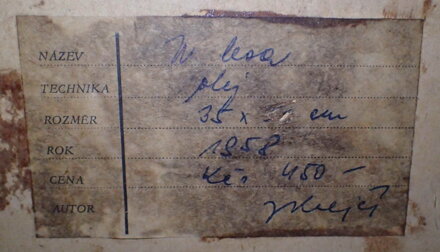 NÁZEV U lesa
TECHNIKA olej
ROZMĚR 35 x cm
ROK 1958
CENA Kčs 450 –
AUTOR